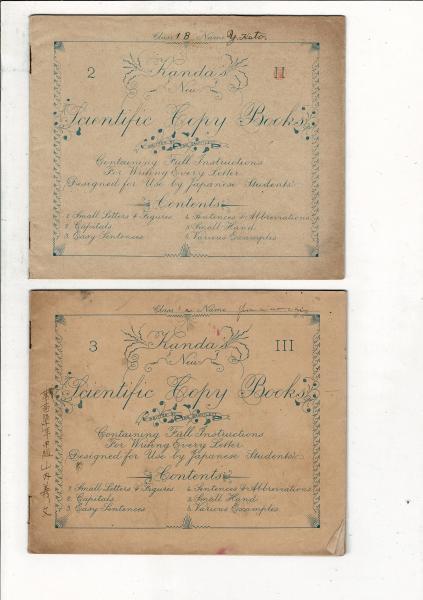 Class 1B Name Y. Kato.
2 Kanda's II
New
Scientific Copy Books
Containing Full Instructions
For Writing Every Letter.
Designed for Use by Japanese Students.
Contents
1 Small Letters & Figures 4 Sentences & Abbreviations
2 Capitals 5 Small Hand
3 Easy Sentences 6 Various Examples
Class Name
3 Kanda's III
New
Scientific Copy Books
Containing Full Instructions
For Writing Every Letter.
Designed for Use by Japanese Students.
Contents
1 Small Letters & Figures 4 Sentences & Abbreviations
2 Capitals 5 Small Hand
3 Easy Sentences 6 Various Examples